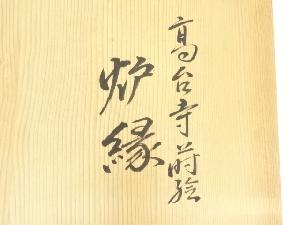 高台寺蒔絵
炉縁